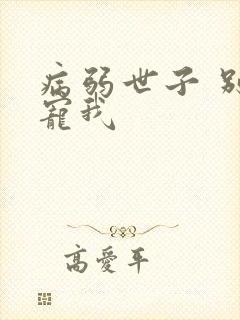 病弱世子 别
宠我
高爱平